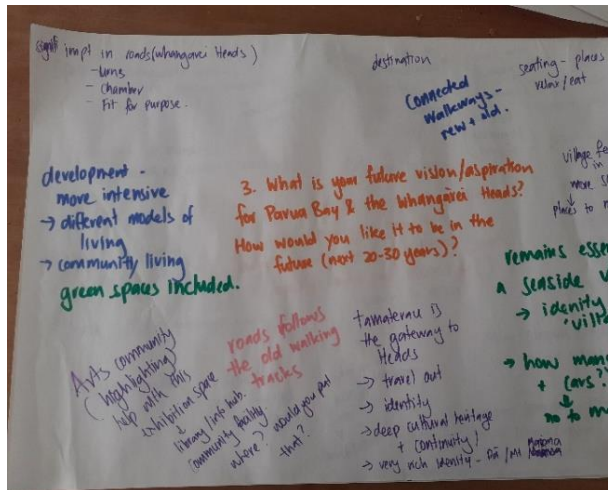 impt in roads (whangarei Heads)
- turns
- Chamber
- Fit for purpose.
destination
Connected
walkways -
new + old.
seating - places
relax/eat
village
in
more
places to
development -
more intensive
→ different models of
living
→ community living
green spaces included.
3. What is your future vision/aspiration
for Parua Bay & the Whangārei Heads?
How would you like it to be in the
future (next 20-30 years)?
remains
a seaside
→ identity
→ how
+ cars?
no to
Arts community
(highlighting)
help with this
exhibition space
library/info hub.
community facility
where? would you put
that?
roads follows
the old walking
tracks
tamaterau is
the gateway to
Heads
→ travel out
→ identity
→ deep cultural heritage
+ continuity!
→ very rich identity -